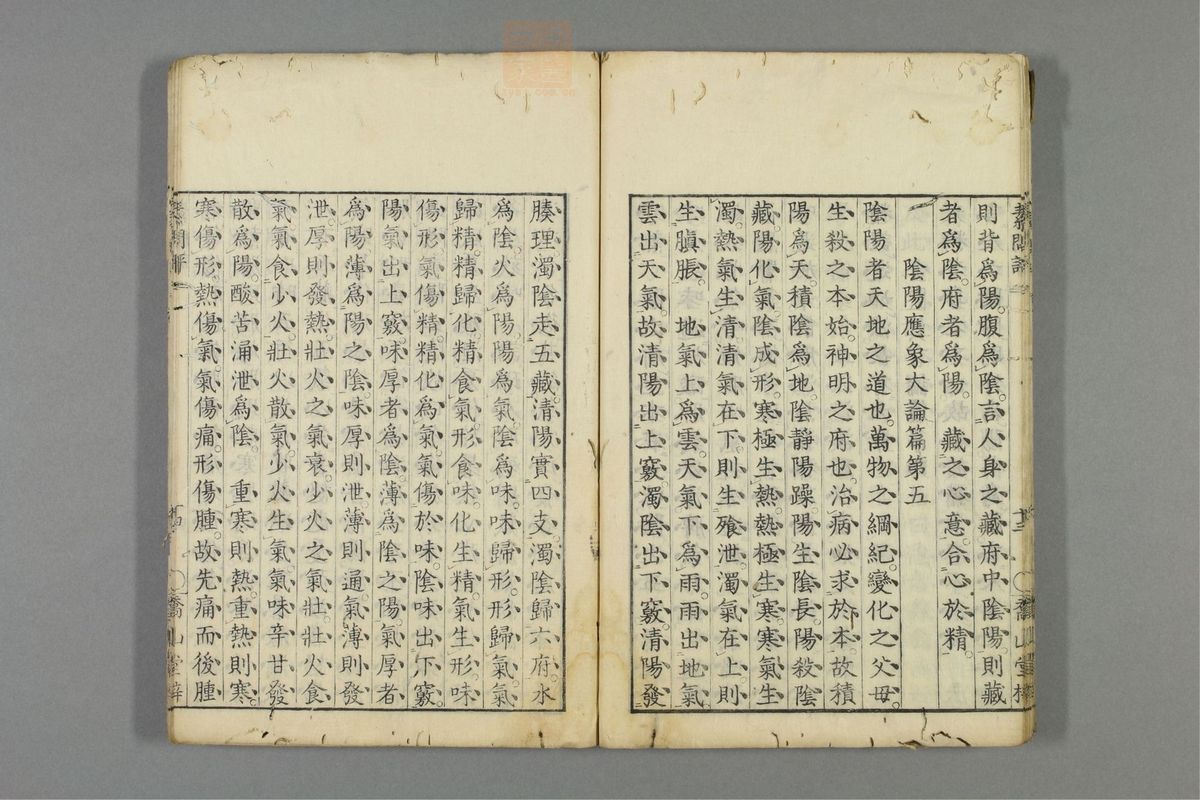 則背爲陽腹爲陰言人身之藏府中陰陽則藏
者爲陰府者爲陽。藏之心意合心於精
陰陽應象大論篇第五
陰陽者天地之道也萬物之綱紀變化之父母
生殺之本始神明之府也治病必求於本故積
陽爲天積陰爲地陰靜陽躁陽生陰長陽殺陰
藏陽化氣陰成形寒極生熱熱極生寒寒氣生
濁熱氣生清清氣在下則生飱泄濁氣在上則
生䐜脹。地氣上爲雲天氣下爲雨雨出地氣
雲出天氣故清陽出上竅濁陰出下竅清陽發
腠理濁陰走五藏清陽實四支濁陰歸六府水
爲陰火爲陽陽爲氣陰爲味味歸形形歸氣氣
歸精精歸化精食氣形食味化生精氣生形味
傷形氣傷精精化爲氣氣傷於味陰味出下竅
陽氣出上竅味厚者爲陰薄爲陰之陽氣厚者
爲陽薄爲陽之陰味厚則泄薄則通氣薄則發
泄厚則發熱壯火之氣衰少火之氣壯壯火食
氣氣食少火壯火散氣少火生氣氣味辛甘發
散爲陽酸苦涌泄爲陰。重寒則熱重熱則寒
寒傷形熱傷氣氣傷痛形傷腫故先痛而後腫